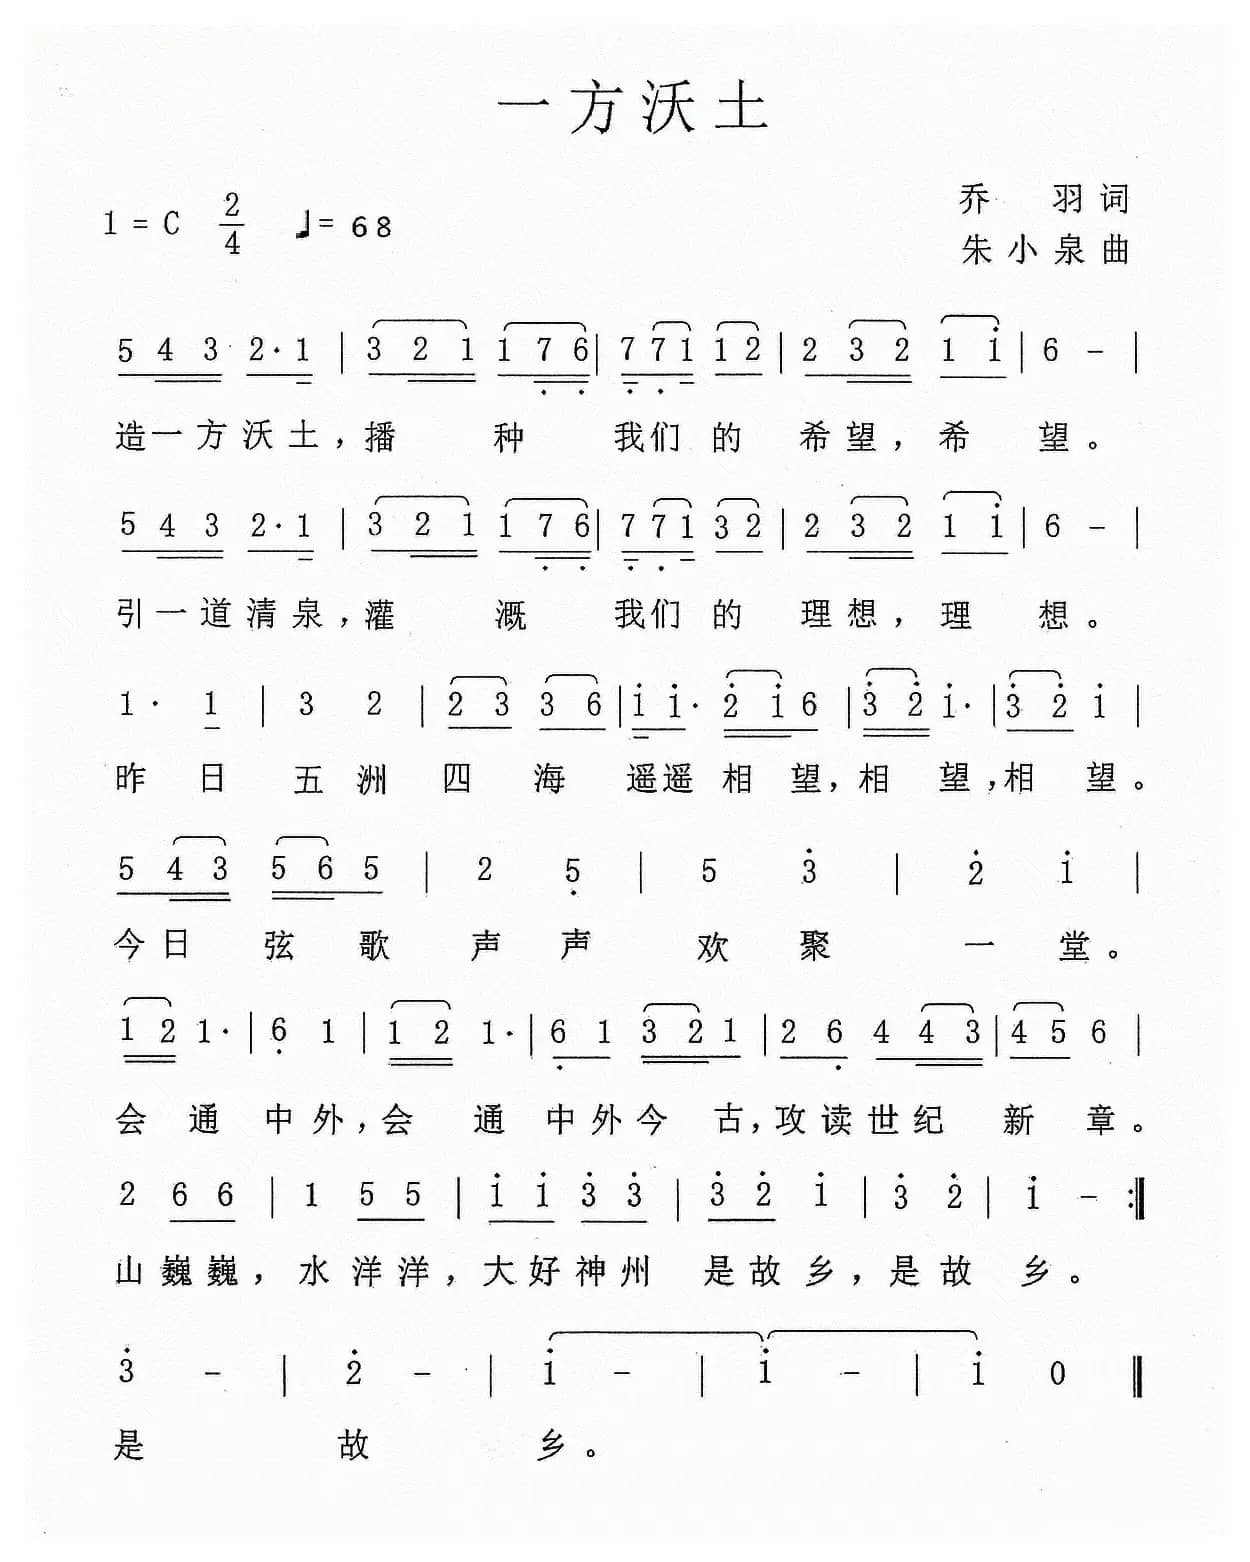 一方沃土
1=C 2/4 ♩=68
乔 羽词
朱小泉曲
5 4 3 2· 1 | 3 2 1 1 7 6 | 7 7 1 1 2 | 2 3 2 1 1 | 6 - |
造一方沃土，播 种 我们 的 希望，希 望。
5 4 3 2· 1 | 3 2 1 1 7 6 | 7 7 1 3 2 | 2 3 2 1 1 | 6 - |
引一道清泉，灌 溉 我们 的 理想，理 想。
1· 1 | 3 2 | 2 3 3 6 | 1 1· 2 1 6 | 3 2 1· | 3 2 1 |
昨 日 五 洲 四 海 遥遥 相 望，相 望，相 望。
5 4 3 5 6 5 | 2 5 | 5 3 | 2 1 |
今日 弦 歌 声 声 欢 聚 一 堂。
1 2 1· | 6 1 | 1 2 1· | 6 1 3 2 1 | 2 6 4 4 3 | 4 5 6 |
会 通 中外，会 通 中外今 古，攻读世纪 新 章。
2 6 6 | 1 5 5 | 1 1 3 3 | 3 2 1 | 3 2 | 1 - :‖
山巍巍，水洋洋，大好神州 是故乡，是故 乡。
3 - | 2 - | 1 - | 1 - | 1 0 ‖
是 故 乡。